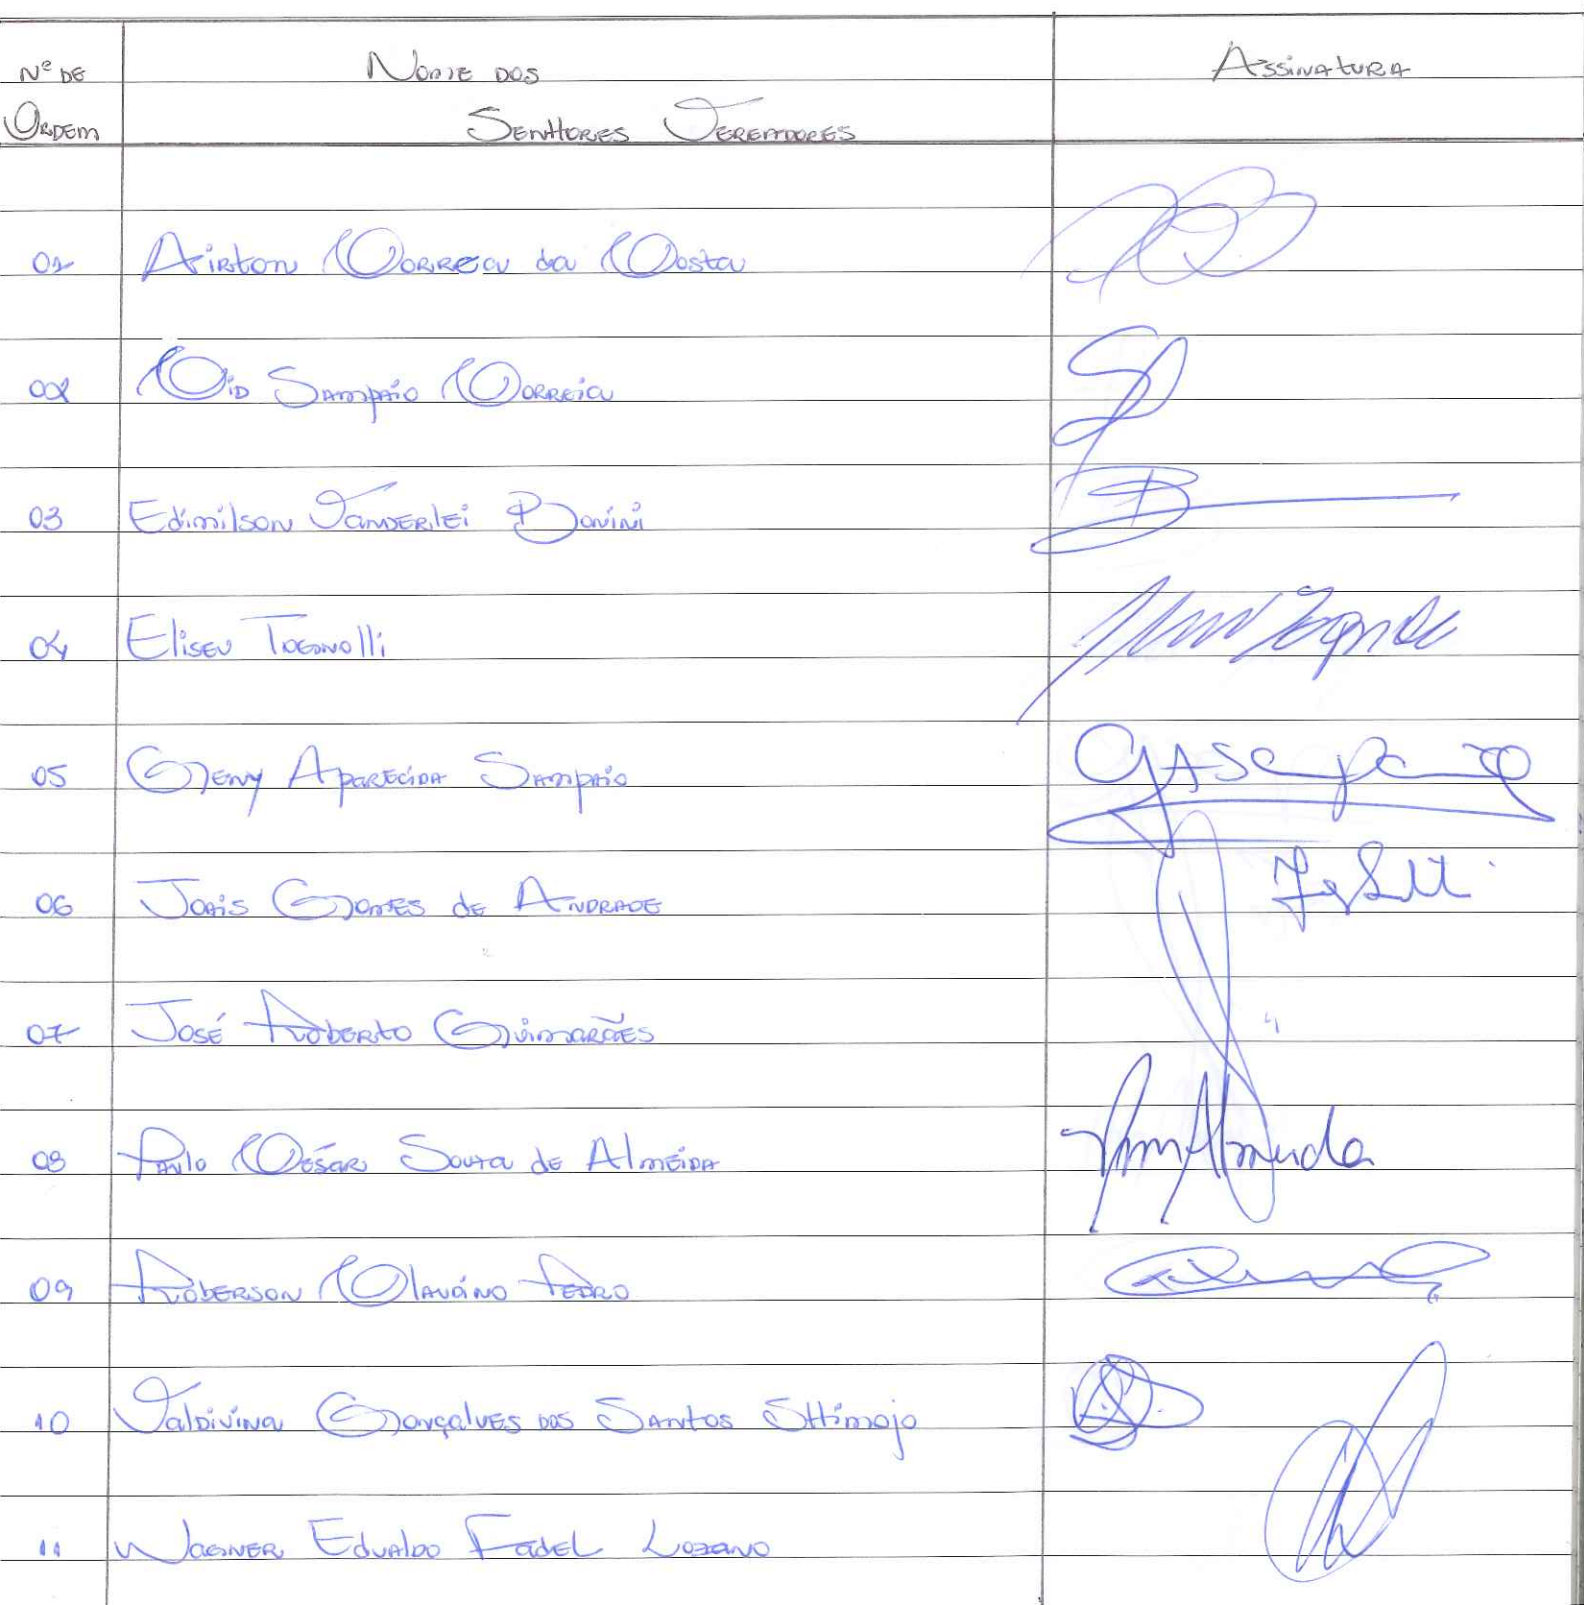 Nº DE Nome dos Assinatura
Ordem Senhores Vereadores
01 Airton Correa da Costa
02 Cid Sampaio Correia
03 Edimilson Vanderlei Bonini
04 Eliseu Tognolli
05 Geny Aparecida Sampaio GASampaio
06 Jonis Gomes de Andrade
07 José Roberto Guimarães
08 Paulo César Souza de Almeida Almeida
09 Roberson Claudino Pedro
10 Valdivina Gonçalves dos Santos Shimojo
11 Wagner Edvaldo Fadel Lozano